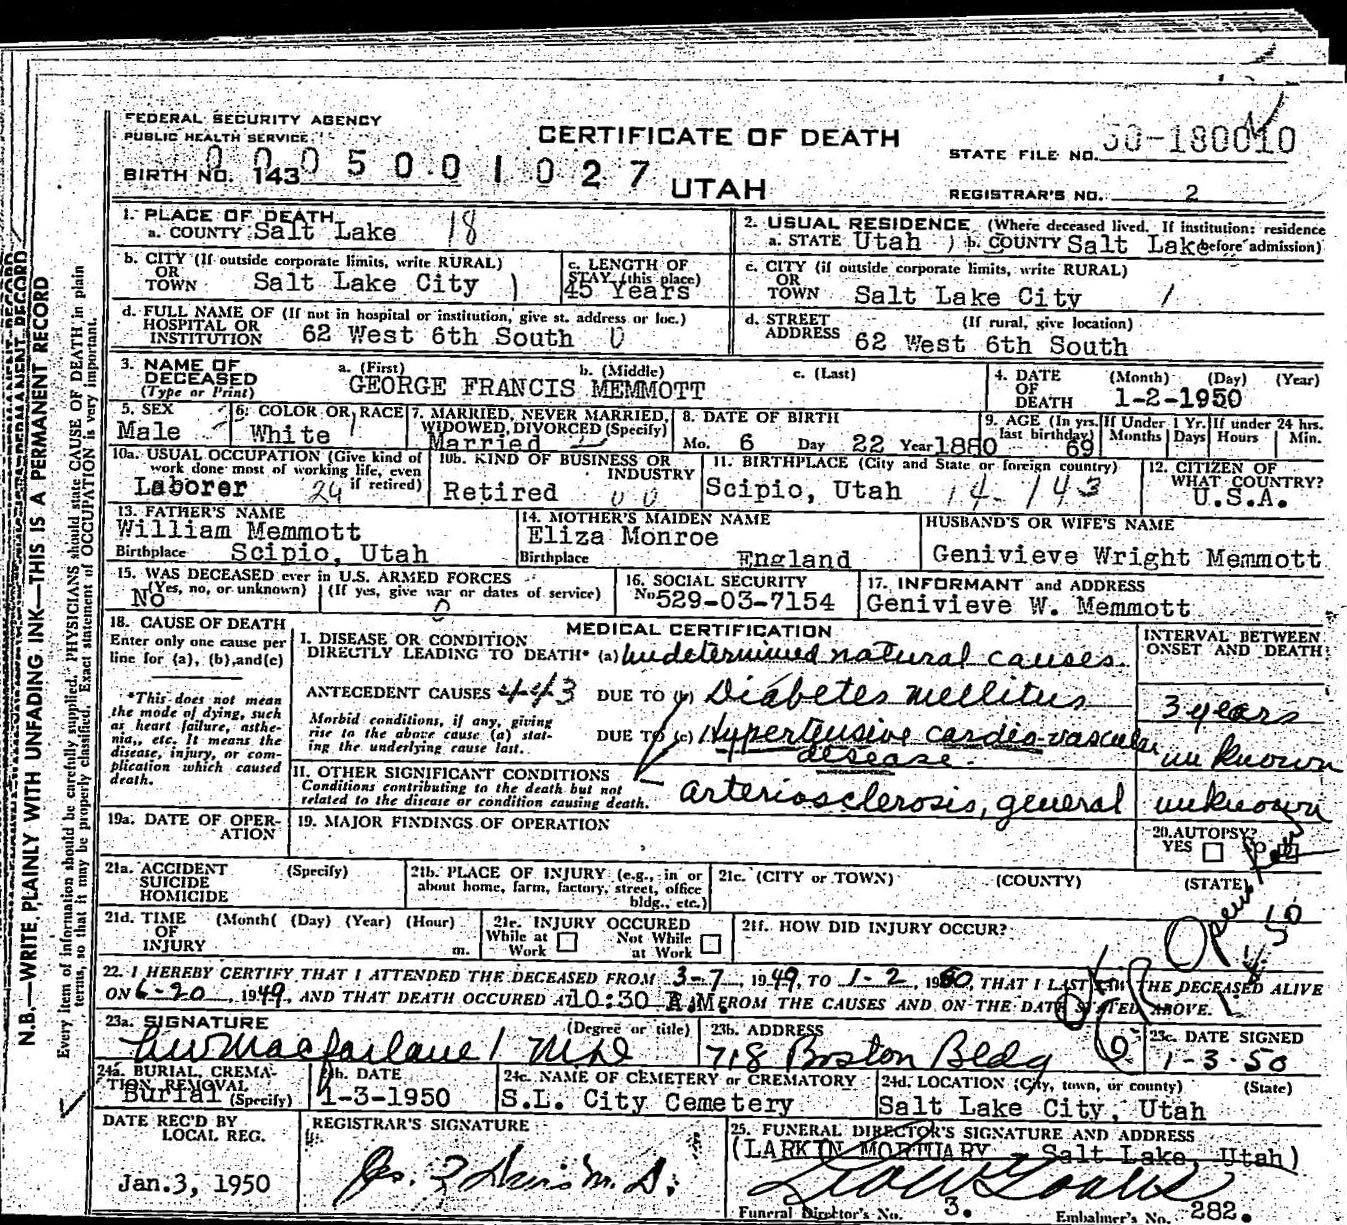 FEDERAL SECURITY AGENCY
PUBLIC HEALTH SERVICE
CERTIFICATE OF DEATH
STATE FILE NO. 50-180010
BIRTH NO. 143 0005001027
UTAH
REGISTRAR'S NO. 2
N.B.—WRITE PLAINLY WITH UNFADING INK—THIS IS A PERMANENT RECORD
Every item of information should be carefully supplied. PHYSICIANS should state CAUSE OF DEATH in plain
terms, so that it may be properly classified. Exact statement of OCCUPATION is very important.
1. PLACE OF DEATH
a. COUNTY Salt Lake 18
2. USUAL RESIDENCE (Where deceased lived. If institution: residence
a. STATE Utah b. COUNTY Salt Lake before admission)
b. CITY (If outside corporate limits, write RURAL)
OR
TOWN Salt Lake City
c. LENGTH OF
STAY (this place)
45 Years
c. CITY (if outside corporate limits, write RURAL)
OR
TOWN Salt Lake City
d. FULL NAME OF (If not in hospital or institution, give st. address or loc.)
HOSPITAL OR
INSTITUTION 62 West 6th South 0
d. STREET (If rural, give location)
ADDRESS 62 West 6th South
3. NAME OF
DECEASED
(Type or Print)
a. (First) b. (Middle) c. (Last)
GEORGE FRANCIS MEMMOTT
4. DATE (Month) (Day) (Year)
OF
DEATH 1-2-1950
5. SEX
Male
6. COLOR OR RACE
White
7. MARRIED, NEVER MARRIED,
WIDOWED, DIVORCED (Specify)
Married
8. DATE OF BIRTH
Mo. 6 Day 22 Year 1880
9. AGE (In yrs.
last birthday)
69
If Under 1 Yr.
Months Days
If under 24 hrs.
Hours Min.
10a. USUAL OCCUPATION (Give kind of
work done most of working life, even
if retired)
Laborer
10b. KIND OF BUSINESS OR
INDUSTRY
Retired
11. BIRTHPLACE (City and State or foreign country)
Scipio, Utah 14-143
12. CITIZEN OF
WHAT COUNTRY?
U.S.A.
13. FATHER'S NAME
William Memmott
Birthplace Scipio, Utah
14. MOTHER'S MAIDEN NAME
Eliza Monroe
Birthplace England
HUSBAND'S OR WIFE'S NAME
Genivieve Wright Memmott
15. WAS DECEASED ever in U.S. ARMED FORCES
(Yes, no, or unknown) (If yes, give war or dates of service)
No
16. SOCIAL SECURITY
No 529-03-7154
17. INFORMANT and ADDRESS
Genivieve W. Memmott
18. CAUSE OF DEATH
Enter only one cause per
line for (a), (b), and (c)
*This does not mean
the mode of dying, such
as heart failure, asthe-
nia,, etc. It means the
disease, injury, or com-
plication which caused
death.
MEDICAL CERTIFICATION
INTERVAL BETWEEN
ONSET AND DEATH:
I. DISEASE OR CONDITION
DIRECTLY LEADING TO DEATH* (a) Undetermined natural causes.
ANTECEDENT CAUSES 443 DUE TO (b) Diabetes mellitus 3 years
Morbid conditions, if any, giving
rise to the above cause (a) stat-
ing the underlying cause last.
DUE TO (c) Hypertensive cardio-vascular
disease. unknown
II. OTHER SIGNIFICANT CONDITIONS
Conditions contributing to the death but not
related to the disease or condition causing death.
arteriosclerosis, general unknown
19a. DATE OF OPER-
ATION
19. MAJOR FINDINGS OF OPERATION
20. AUTOPSY?
YES NO
21a. ACCIDENT (Specify)
SUICIDE
HOMICIDE
21b. PLACE OF INJURY (e.g., in or
about home, farm, factory, street, office
bldg., etc.)
21c. (CITY or TOWN) (COUNTY) (STATE)
21d. TIME (Month( (Day) (Year) (Hour)
OF
INJURY m.
21e. INJURY OCCURED
While at Work Not While at Work
21f. HOW DID INJURY OCCUR?
22. I HEREBY CERTIFY THAT I ATTENDED THE DECEASED FROM 3-7, 1949, TO 1-2, 1950, THAT I LAST SAW THE DECEASED ALIVE
ON 6-20, 1949, AND THAT DEATH OCCURED AT 10:30 A.M. FROM THE CAUSES AND ON THE DATE STATED ABOVE.
23a. SIGNATURE (Degree or title)
MacFarlane MD
23b. ADDRESS
718 Boston Bldg
23c. DATE SIGNED
1-3-50
24a. BURIAL, CREMA-
TION, REMOVAL
Burial (Specify)
24b. DATE
1-3-1950
24c. NAME OF CEMETERY or CREMATORY
S.L. City Cemetery
24d. LOCATION (City, town, or county) (State)
Salt Lake City, Utah
DATE REC'D BY
LOCAL REG.
Jan.3, 1950
REGISTRAR'S SIGNATURE
25. FUNERAL DIRECTOR'S SIGNATURE AND ADDRESS
(LARKIN MORTUARY - Salt Lake, Utah)
Funeral Director's No. 3. Embalmer's No. 282.